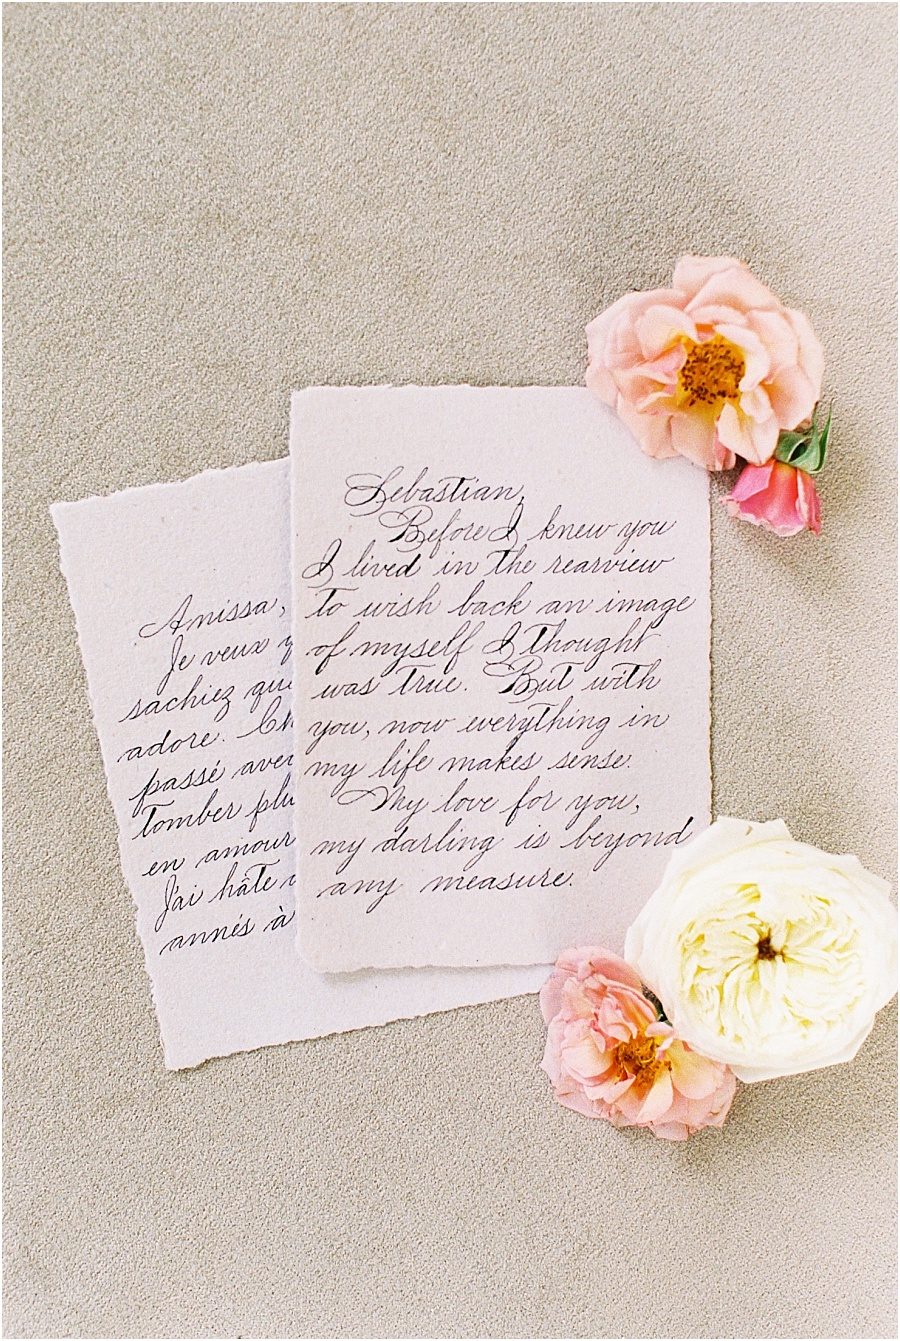 Anissa,
Je veux
sachiez que
adore.
passé avec
tomber plu
en amour
J'ai hâte
annés à
Sebastian,
Before I knew you
I lived in the rearview
to wish back an image
of myself I thought
was true. But with
you, now everything in
my life makes sense.
My love for you,
my darling is beyond
any measure.